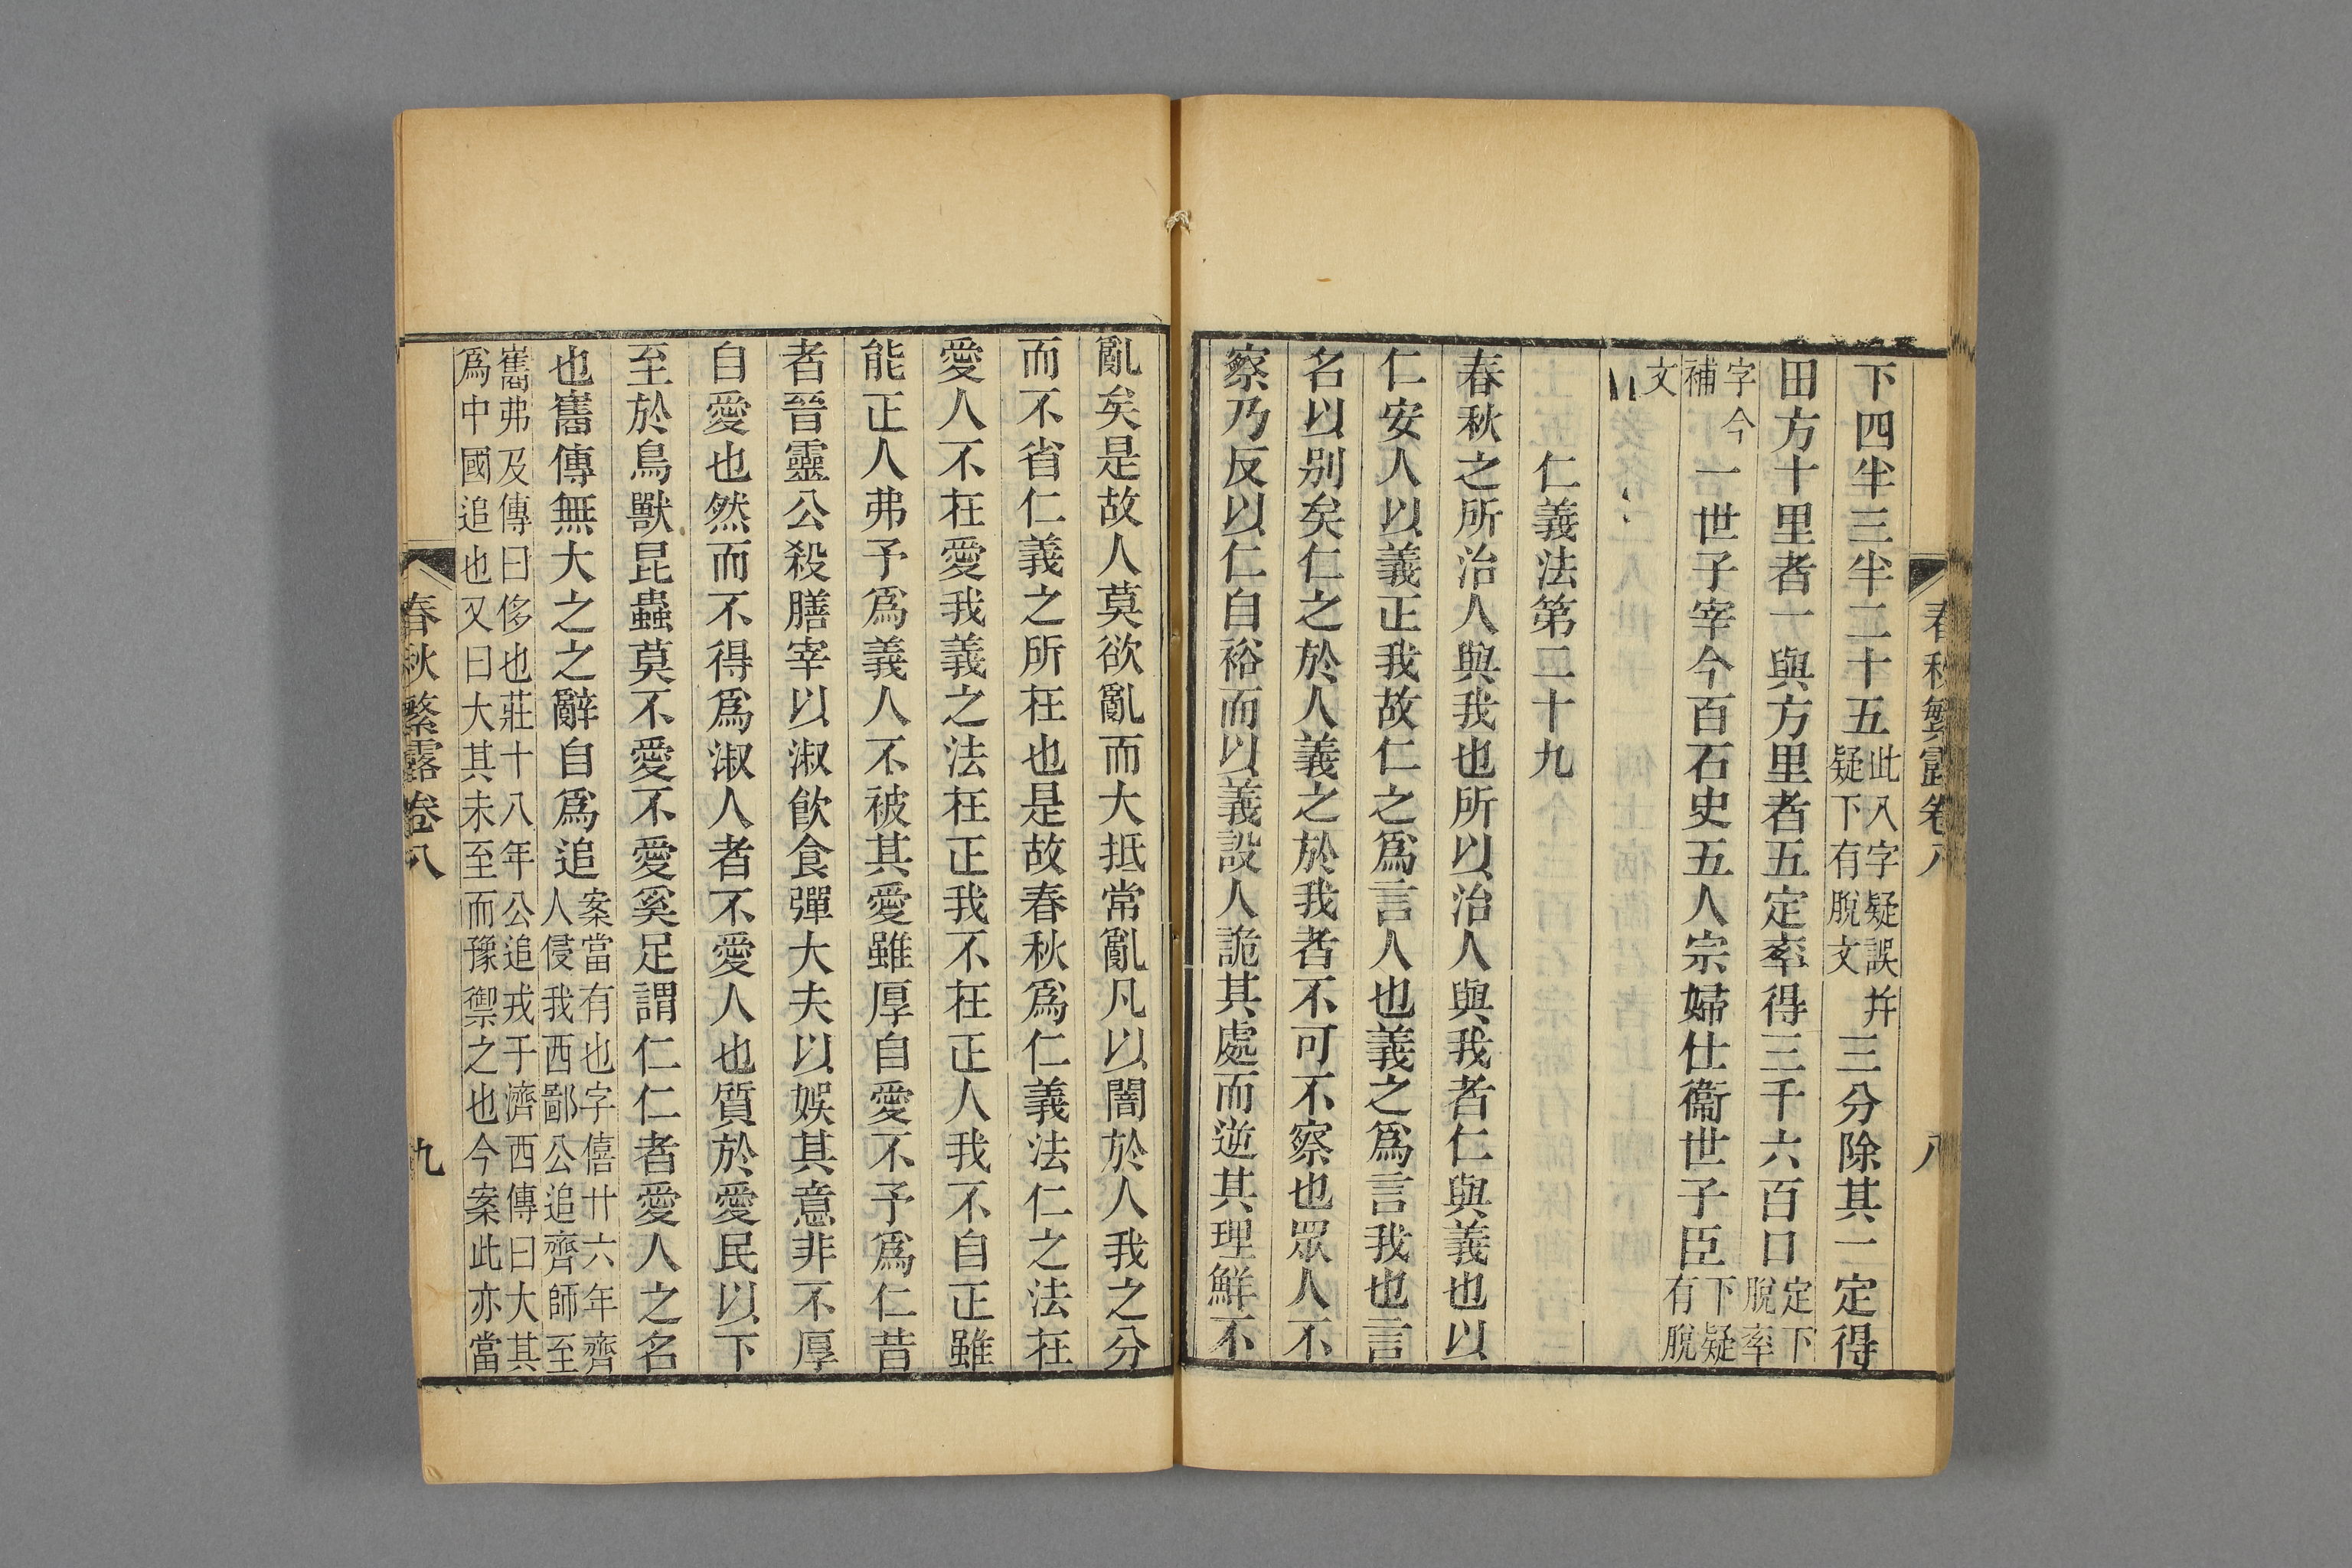 春秋繁露卷八 八
下四半三半二十五此八字疑誤疑下有脫文幷三分除其一定得
田方十里者一與方里者五定率得三千六百口定下脫率
字今補一世子宰今百石史五人宗婦仕衞世子臣下疑有脫
文
仁義法第二十九
春秋之所治人與我也所以治人與我者仁與義也以
仁安人以義正我故仁之爲言人也義之爲言我也言
名以别矣仁之於人義之於我者不可不察也眾人不
察乃反以仁自裕而以義設人詭其處而逆其理鮮不
亂矣是故人莫欲亂而大抵常亂凡以闇於人我之分
而不省仁義之所在也是故春秋爲仁義法仁之法在
愛人不在愛我義之法在正我不在正人我不自正雖
能正人弗予爲義人不被其愛雖厚自愛不予爲仁昔
者晉靈公殺膳宰以淑飮食彈大夫以娛其意非不厚
自愛也然而不得爲淑人者不愛人也質於愛民以下
至於鳥獸昆蟲莫不愛不愛奚足謂仁仁者愛人之名
也巂傳無大之之辭自爲追案當有也字僖廿六年齊人侵我西鄙公追齊師至
巂弗及傳曰侈也莊十八年公追戎于濟西傳曰大其爲中國追也又曰大其未至而豫禦之也今案此亦當
春秋繁露卷八 九